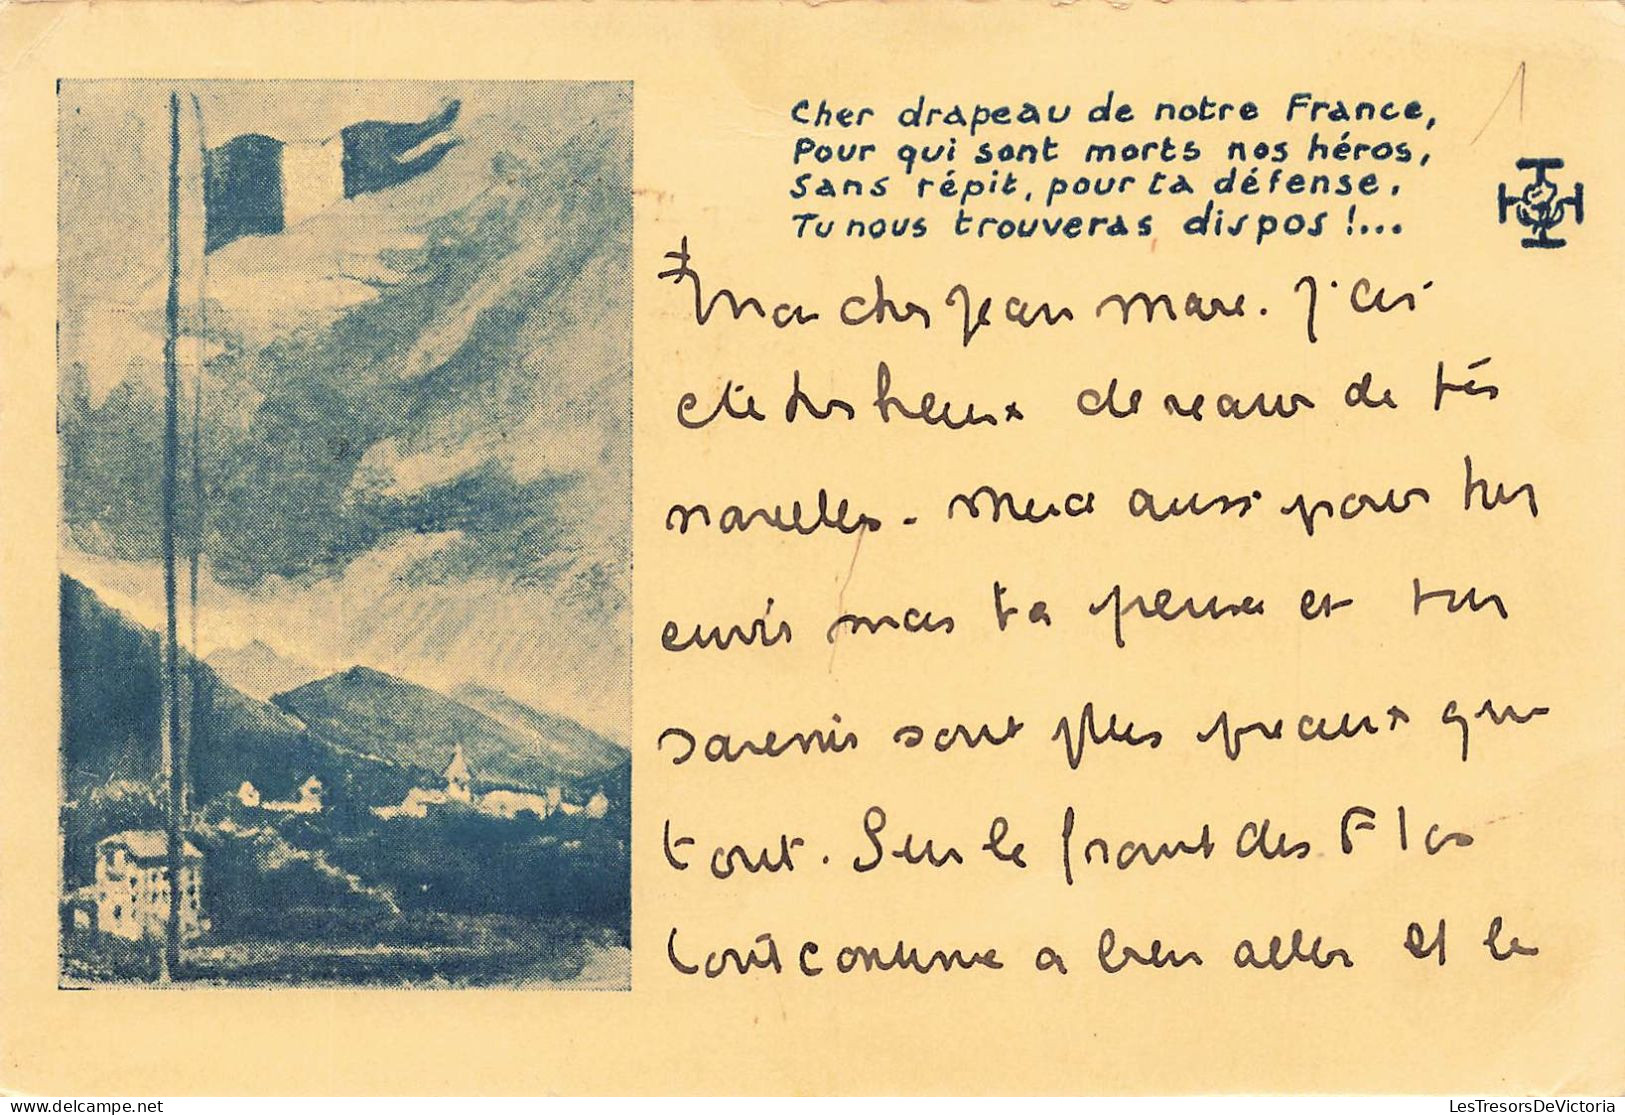 Cher drapeau de notre France,
Pour qui sont morts nos héros,
Sans répit, pour ta défense,
Tu nous trouveras dispos !...
1
Mon cher Jean Marc. J'ai
été très heureux de recevoir de tes
nouvelles. Merci aussi pour tes
envois mais ta pensée et ton
souvenir sont plus précieux que
tout. Sur le front des Flos
tout continue a bien aller et le
LesTresorsDeVictoria